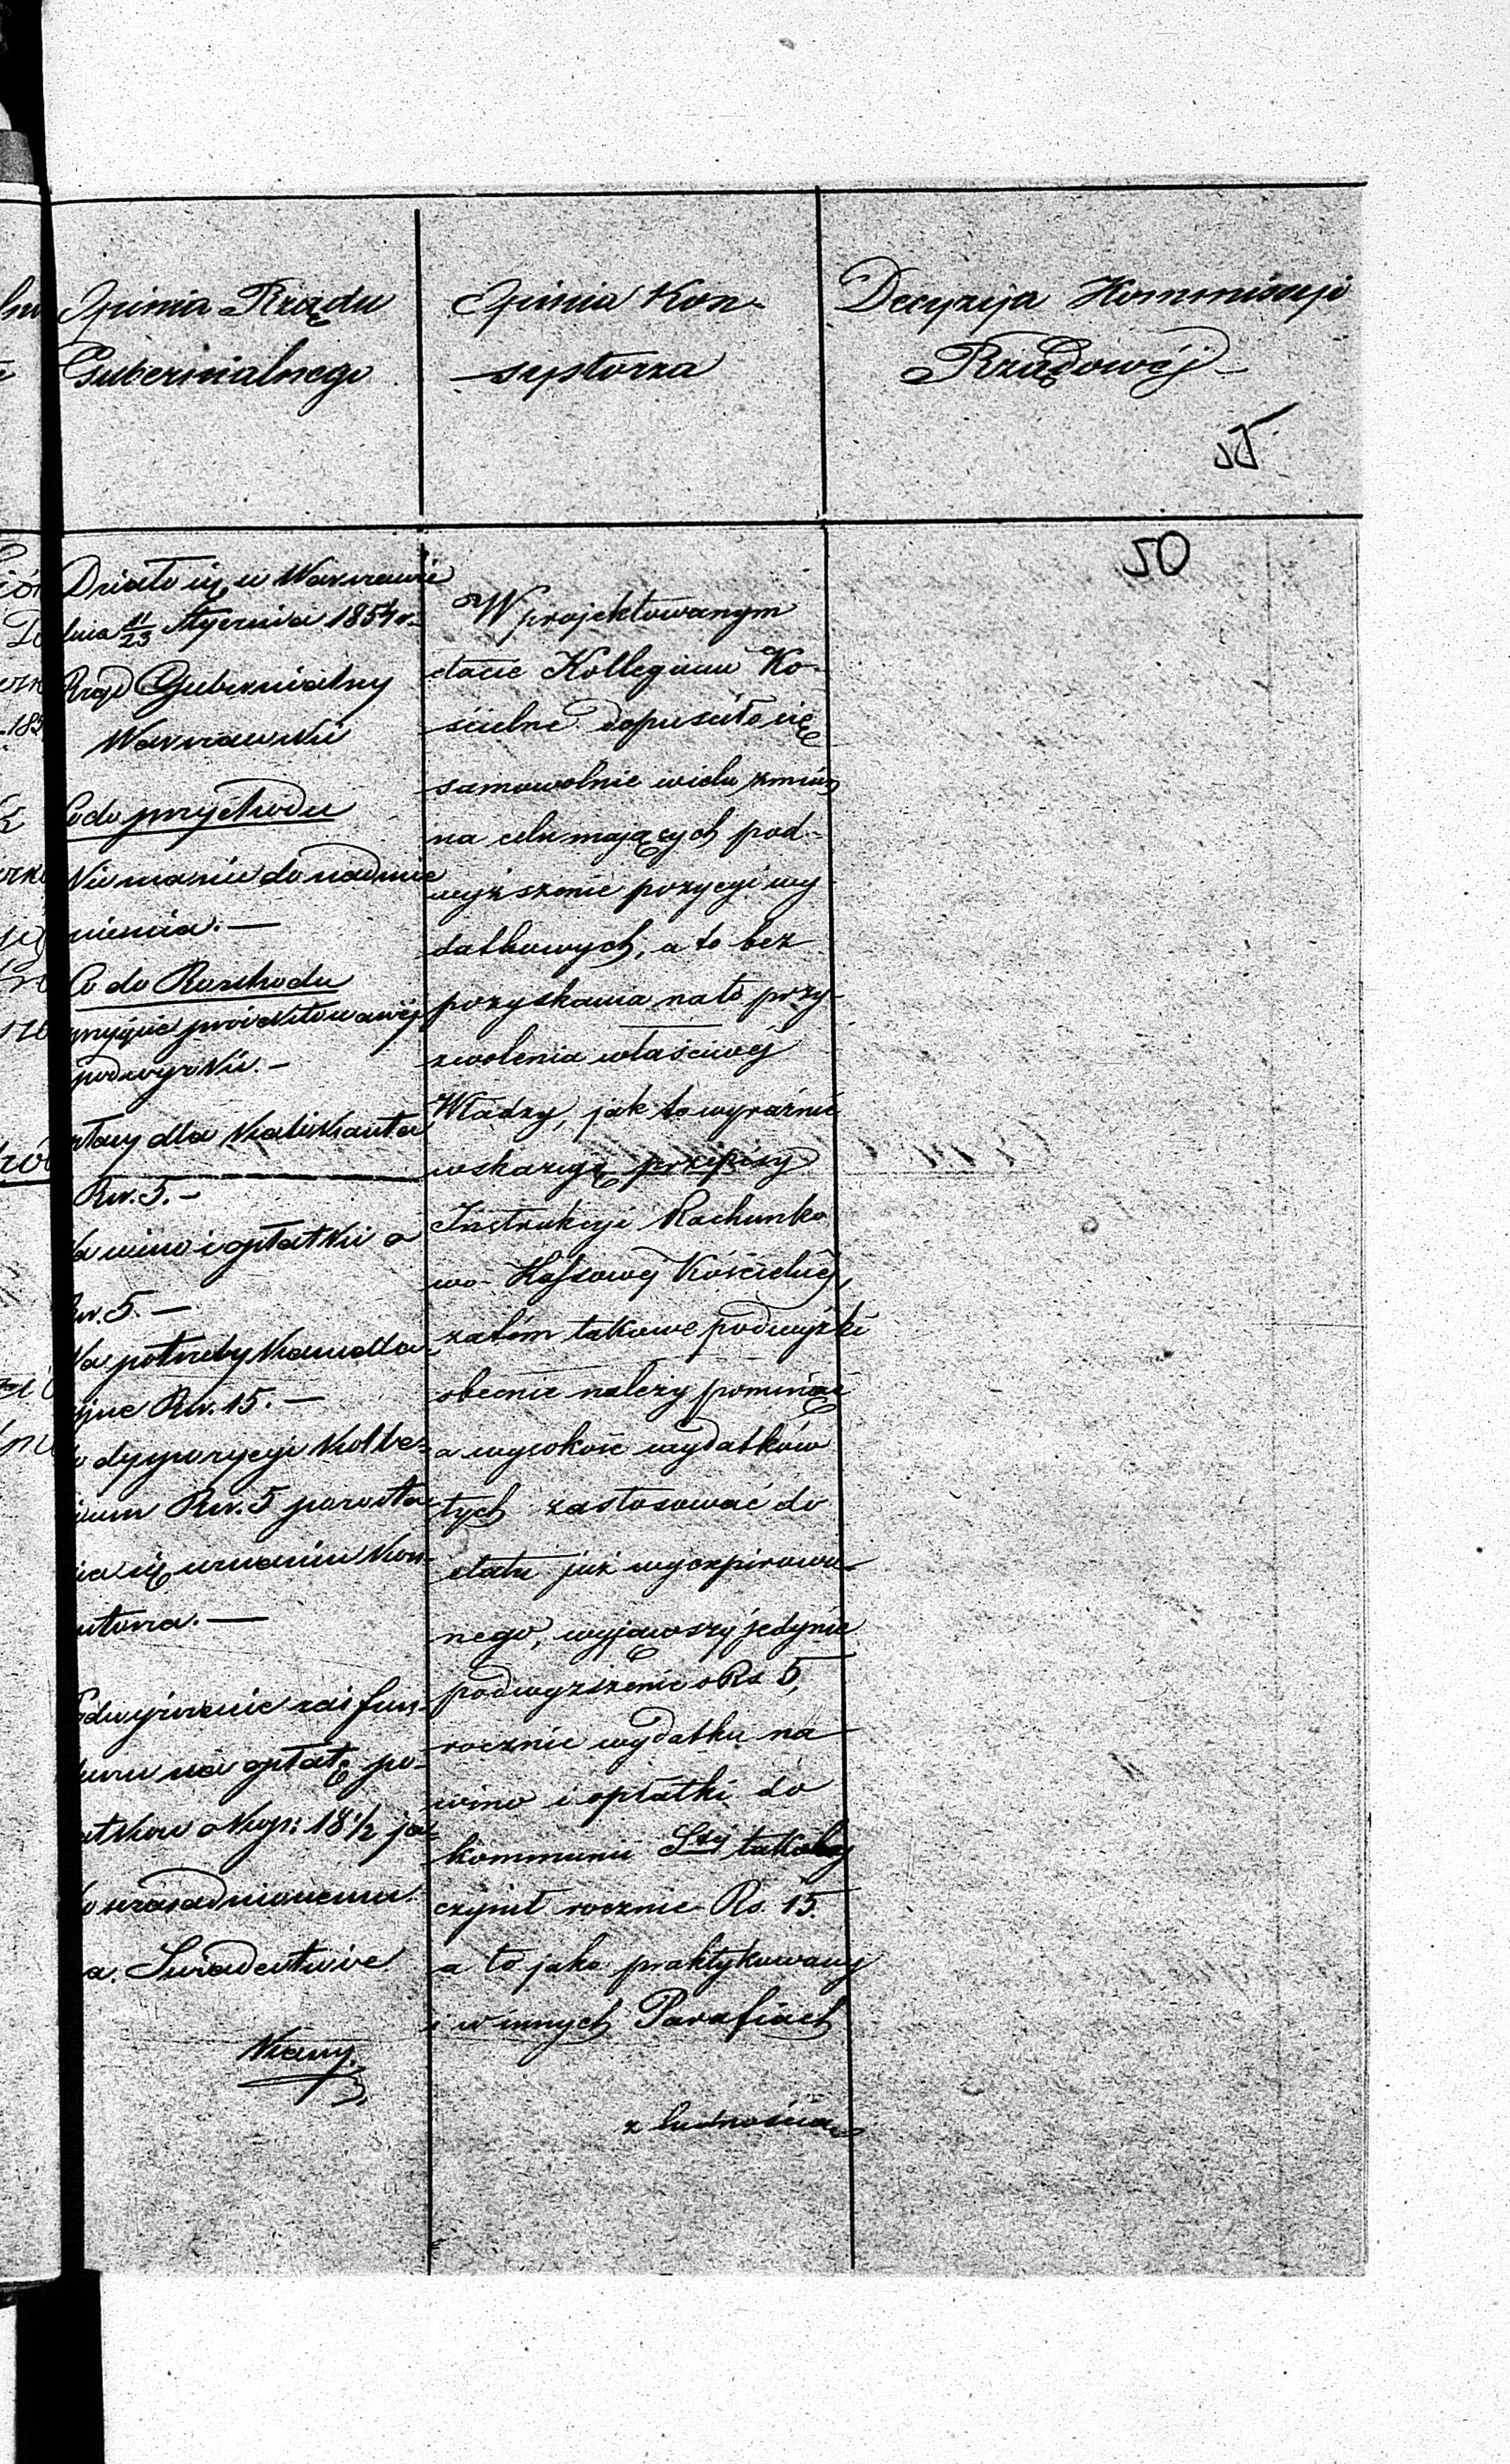 Opinia Rządu
Gubernialnego
Opinia Kon-
septorza
Decyzija Kommissyi
Rządowéj
50
Działo się w Warszawie
dnia 11/23 Stycznia 1854 r.
Rząd Gubernialny
Warszawski
Co do przychodu
Nie ma nic do nadmie
nienia. —
Co do Rozchodu
przyjęcie projektowanéj
podwyżki. —
płacy dla Kalikanta
Rsr. 5. —
Na wino i opłatki o
Rsr. 5. —
Na potrzeby Kancella-
ryjne Rsr. 15. —
do dyspozycyi Kolle-
gium Rsr. 5 pozosta-
wia się uznaniu Kon-
systorza. —
Podwyższenie zaś fun-
duszu na opłatę po-
datków o Kop: 18 1/2 ja-
ko uzasadnionemu.
a. Świadectwie
W projektowanym
etacie Kollegium Ko-
ścielne dopuściło się
samowolnie wielu zmian
na celu mających pod-
wyższenie pozycyi wy-
datkowych, a to bez
pozyskania na to przy-
zwolenia właściwéj
Władzy, jak to wyraźnie
wskazują przepisy
Instrukcyi Rachunko
wo-Kassowéj Kościelnéj,
zatém takowe podwyżki
obecnie należy pominąć
a wysokość wydatków
tych zastosować do
etatu już wyexpirowa-
nego, wyjąwszy jedynie
podwyższenie o Rs 5,
rocznie wydatku na
wino i opłatki do
kommunii Stéj takoby
czynił rocznie Rs. 15.
a to jako praktykowany
i w innych Parafiach
z ludnością